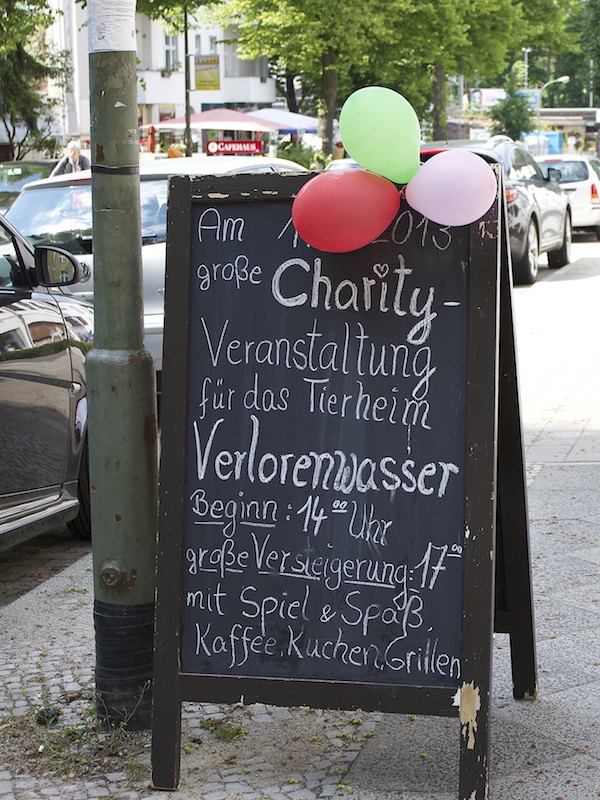 Am 2013
große Charity-
Veranstaltung
für das Tierheim
Verlorenwasser
Beginn: 14 00 Uhr
große Versteigerung: 17 00
mit Spiel & Spaß,
Kaffee, Kuchen, Grillen
CAFEHAUS